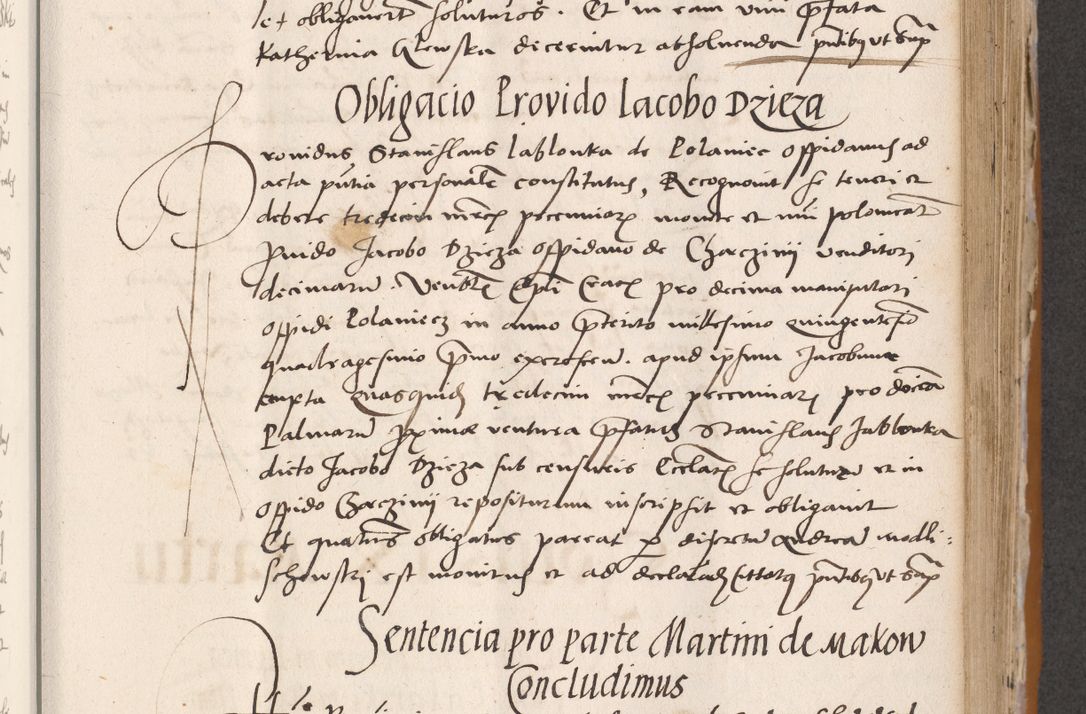 et obligavert soluturos. Et in eam vim pfata
Katherina Glewska decernitur absoluenda pntibq vt sup
Obligacio Provido Iacobo Dzieza
Prouidus Stanislaus Iablonka de Polaniec oppidanus ad
acta pntia personale constitutus, Recognovit se teneri et
debere tredecim mrcs pecuniarz monete et nui polonicat
puido Jacobo Dzieza oppidano de Charczinij venditori
decimarum. Venbt Epi Crac pro decima manipulari
oppidi Polaniecz in anno pterito millesimo quingentesio
quadragesimo pmo apud ipsum Jacobum
empta Quasquid tredecim mrcs pecuniarz pro docica
Palmarum pxime ventura pfatus Stanislaus Jablonka
dicto Jacobo Dzieza sub censuris Ecclat se soluturu et in
oppido Charczinij repositurum inscripsit et obligauit
Et quatens obligatus pareat p discretu Andrea modli:
schewskj est monitus et ad declarad pntibq vt sup
Sentencia pro parte Martini de Makow
Concludimus